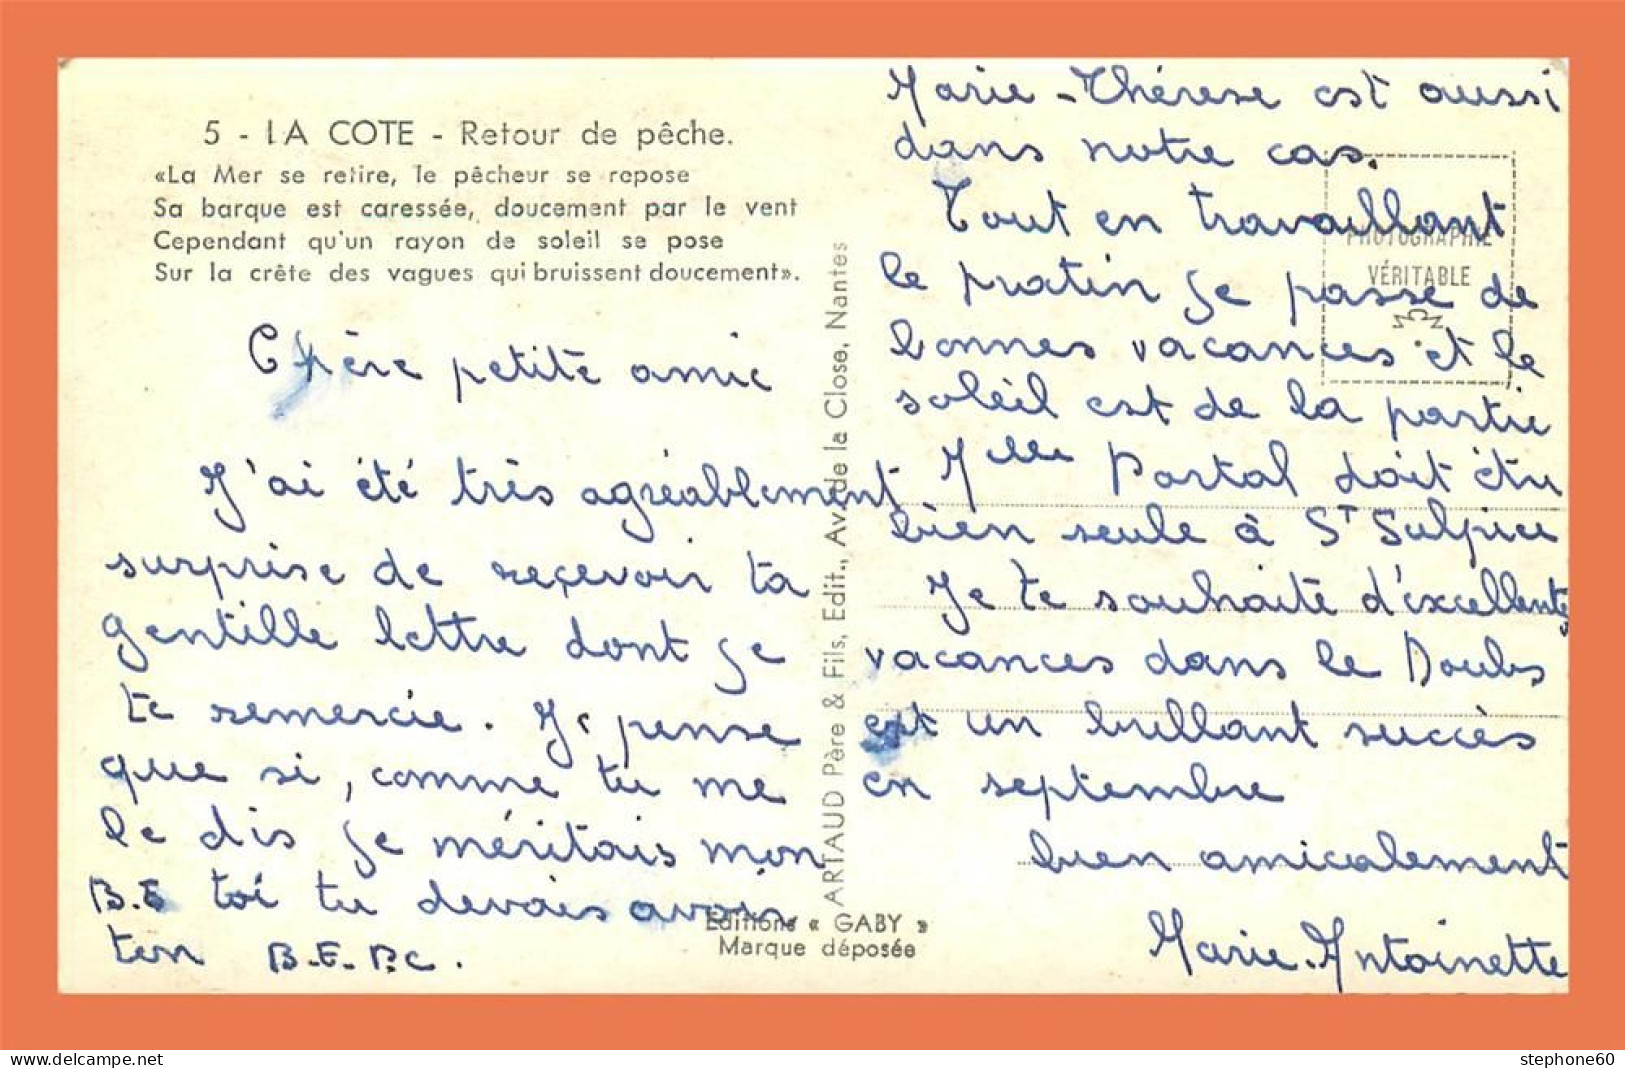 5 - LA COTE - Retour de pêche.
«La Mer se retire, le pêcheur se repose
Sa barque est caressée, doucement par le vent
Cependant qu'un rayon de soleil se pose
Sur la crête des vagues qui bruissent doucement».
Chère petite amie
J'ai été très agréablement
surprise de reçevoir ta
gentille lettre dont je
te remercie. Je pense
que si, comme tu me
le dis je méritais mon
B.E toi tu devais avoir
ton B.E.P.C.
Editions « GABY »
Marque déposée
ARTAUD Père & Fils, Edit., Av. de la Close, Nantes
Marie-Thérèse est aussi
dans notre cas.
Tout en travaillant
le matin je passe de
bonnes vacances et le
soleil est de la partie
Melle Portal doit être
bien seule à St Sulpice
Je te souhaite d'excellentes
vacances dans le Doubs
et un brillant succès
en septembre
bien amicalement
Marie-Antoinette
PHOTOGRAPHIE
VÉRITABLE
stephone60